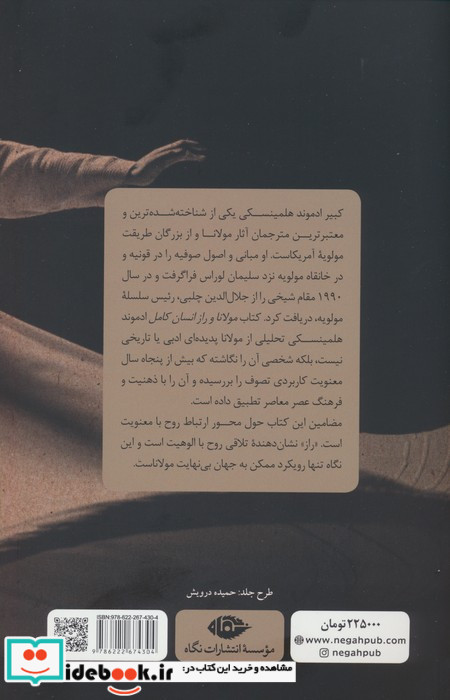 کبیر ادموند هلمینسکی یکی از شناخته‌شده‌ترین و
معتبرترین مترجمان آثار مولانا و از بزرگان طریقت
مولویهٔ آمریکاست. او مبانی و اصول صوفیه را در قونیه و
در خانقاه مولویه نزد سلیمان لوراس فراگرفت و در سال
۱۹۹۰ مقام شیخی را از جلال‌الدین چلبی، رئیس سلسلهٔ
مولویه، دریافت کرد. کتاب مولانا و راز انسان کامل ادموند
هلمینسکی تحلیلی از مولانا پدیده‌ای ادبی یا تاریخی
نیست، بلکه شخصی آن را نگاشته که بیش از پنجاه سال
معنویت کاربردی تصوف را بررسیده و آن را با ذهنیت و
فرهنگ عصر معاصر تطبیق داده است.
مضامین این کتاب حول محور ارتباط روح با معنویت
است. «راز» نشان‌دهندهٔ تلاقی روح با الوهیت است و این
نگاه تنها رویکرد ممکن به جهان بی‌نهایت مولاناست.
طرح جلد: حمیده درویش
۲۲۵۰۰۰ تومان
www.negahpub.com
negahpub
مؤسسهٔ انتشارات نگاه
ISBN: 978-622-267-430-4
9786222674304
مشاهده و خرید این کتاب در:
iidebook.ir